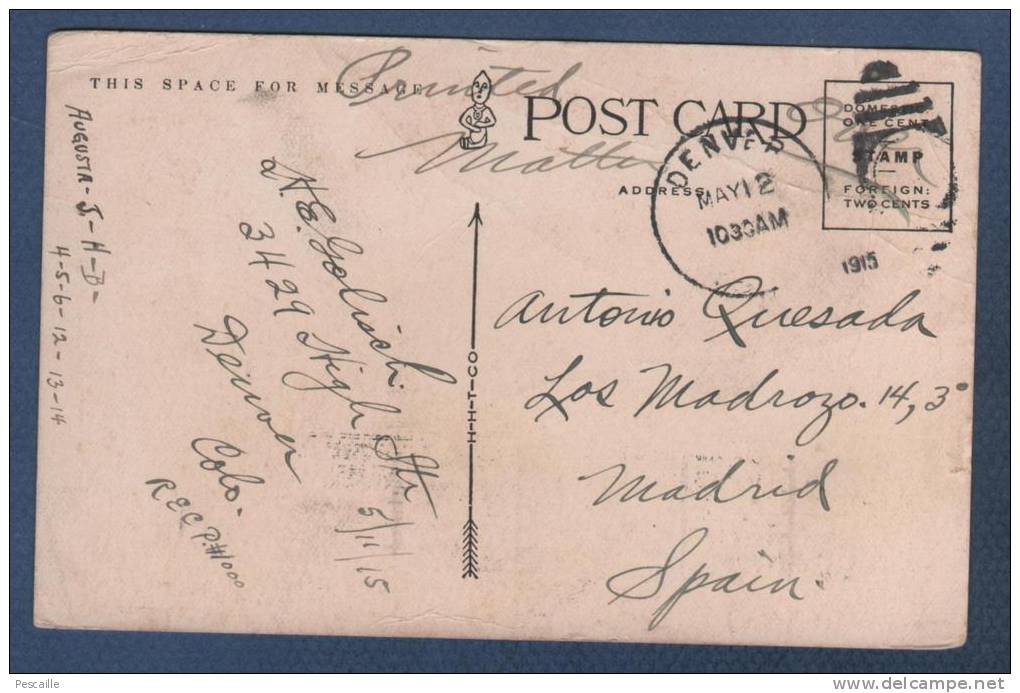 THIS SPACE FOR MESSAGE
Printed
Matter
POST CARD
ADDRESS
DOMESTIC
ONE CENT
STAMP
FOREIGN:
TWO CENTS
DENVER
MAY 12
1030AM
1915
Antonio Quesada
Los Madrozo. 14, 3º
Madrid
Spain.
H-H-T-CO
3429 High Str
Denver
Colo.
5/11/15
REC P.#1000
AUGUSTA-J-H-B-
4-5-6-12-13-14
Pescaille
www.delcampe.net